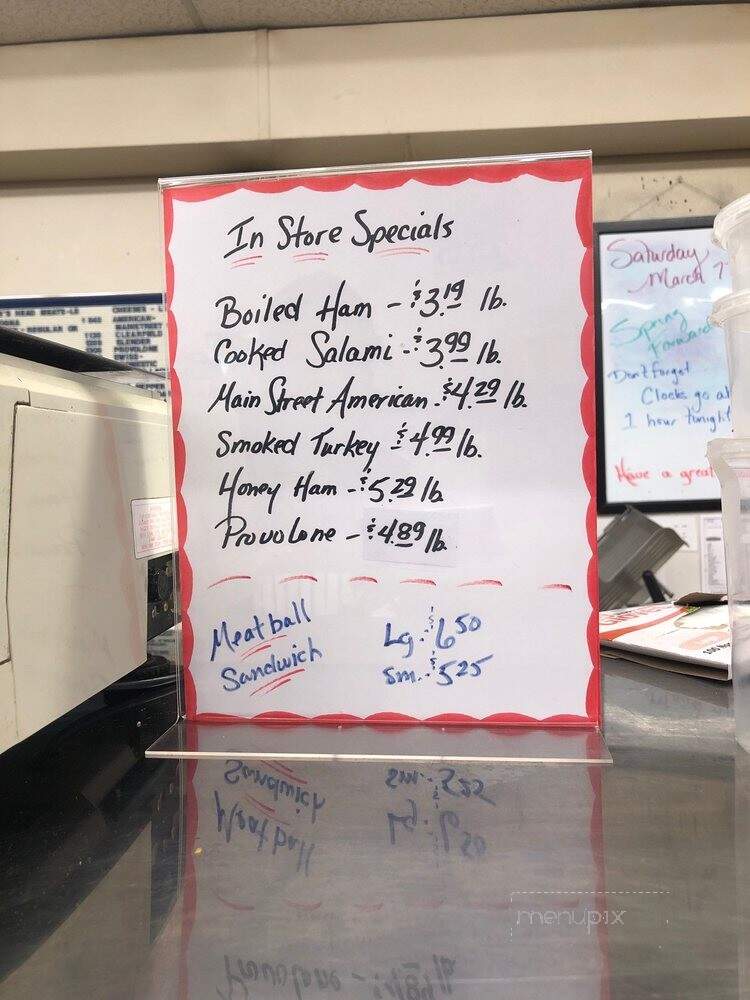 In Store Specials
Boiled Ham - $3.19 lb.
Cooked Salami - $3.99 lb.
Main Street American - $4.29 lb.
Smoked Turkey - $4.99 lb.
Honey Ham - $5.29 lb
Provolone - $4.89 lb.
Meatball Lg. - $6.50
Sandwich Sm. - $5.25
Saturday
March 7
Spring
Forward
Don't forget
Clocks go
1 hour tonight
Have a great
CHEESES
AMERICAN-
MAINSTREET
CLEARFIELD
SLENDER
PROVOLONE
SWISS-
menupix